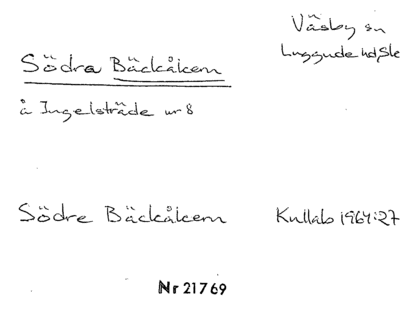 Väsby sn
Luggude hd, Sk
Södra Bäckåkern
å Ingelsträde nr 8
Södre Bäckåkern Kullab 1964:27
Nr 21769